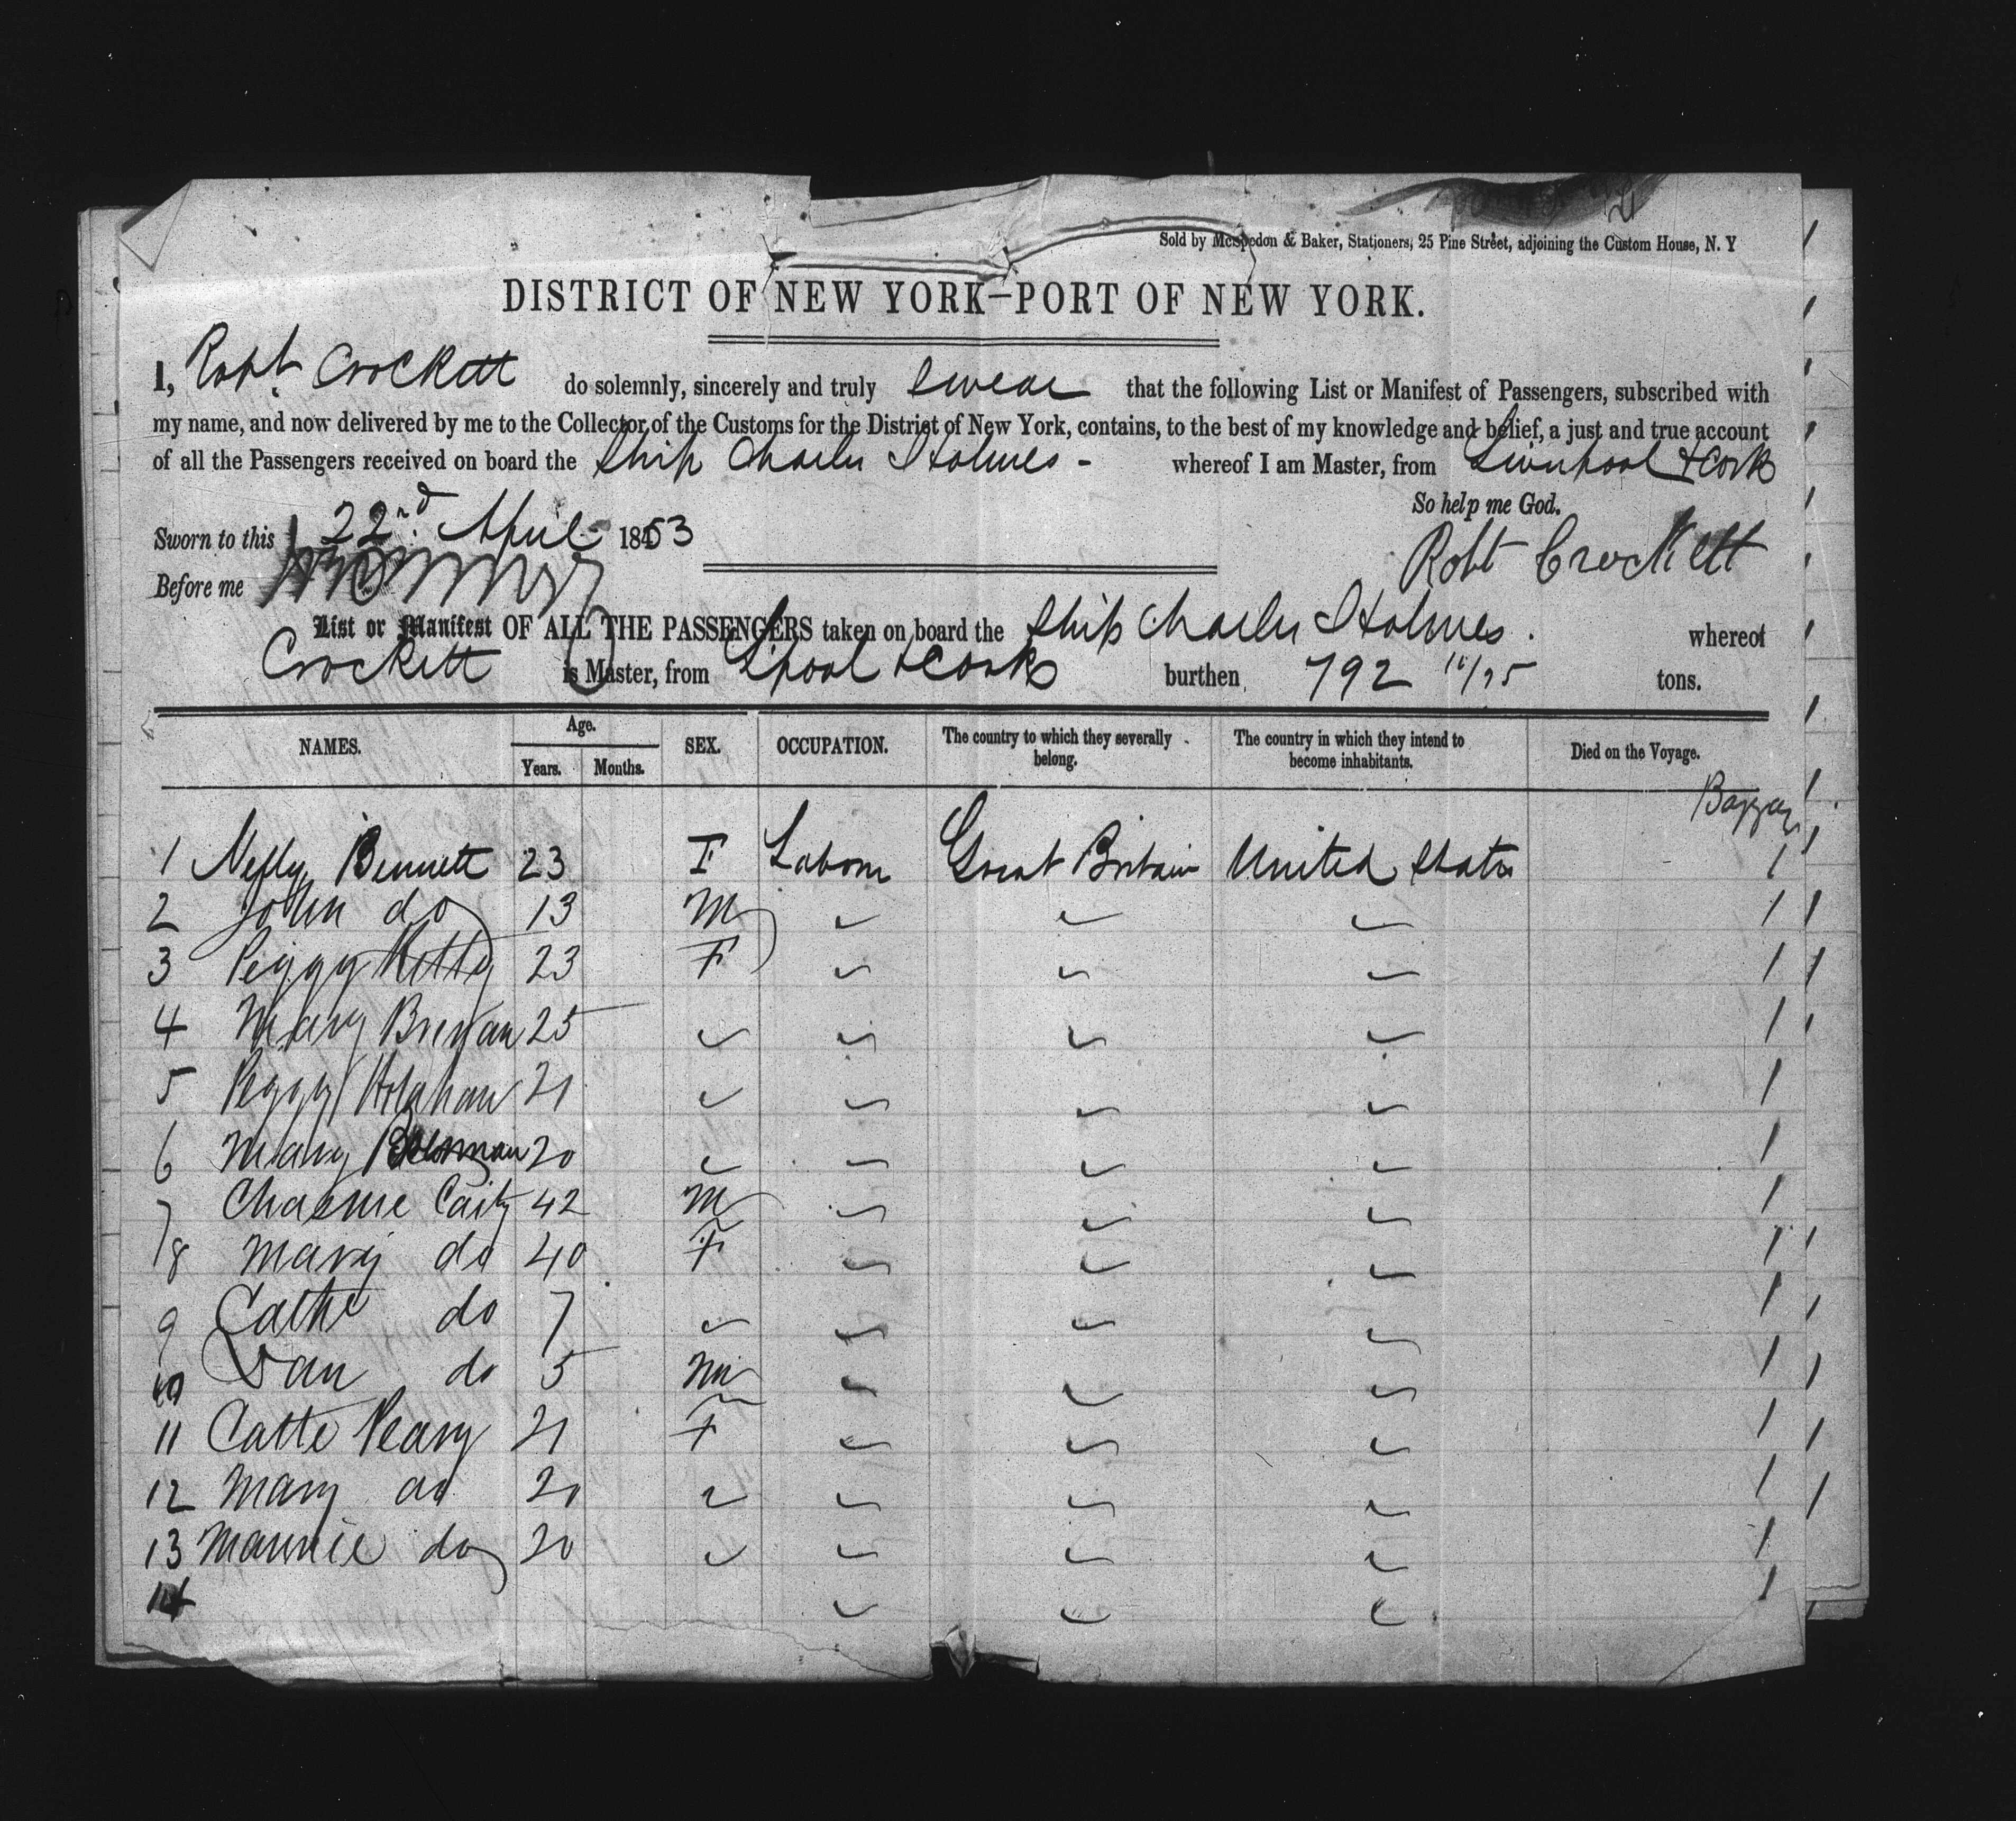 Sold by McSpedon & Baker, Stationers, 25 Pine Street, adjoining the Custom House, N. Y
DISTRICT OF NEW YORK—PORT OF NEW YORK.
I, Robt Crockett do solemnly, sincerely and truly swear that the following List or Manifest of Passengers, subscribed with
my name, and now delivered by me to the Collector of the Customs for the District of New York, contains, to the best of my knowledge and belief, a just and true account
of all the Passengers received on board the Ship Charles Holmes - whereof I am Master, from Liverpool & Cork
So help me God.
Sworn to this 22nd April 1853
Robt Crockett
Before me
List or Manifest OF ALL THE PASSENGERS taken on board the Ship Charles Holmes. whereof
Crockett is Master, from Lpool & Cork burthen 792 tons.
NAMES. Age. SEX. OCCUPATION. The country to which they severally belong. The country in which they intend to become inhabitants. Died on the Voyage.
Years. Months.
1 Nelly Bennett 23 F Labour Great Britain United States 1
2 John do 13 M 1
3 Peggy 23 F 1
4 Mary 25 1
5 Peggy 21 1
6 Mary 20 1
7 42 M 1
8 Mary do 40 F 1
9 Cathe do 7 1
10 Dan do 5 M 1
11 Catte 21 F 1
12 Mary do 20 1
13 do 20 1
14 1